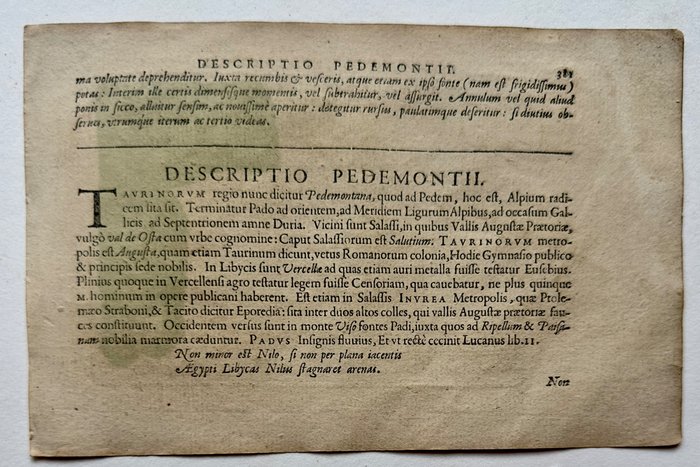 DESCRIPTIO PEDEMONTII. 381
ma voluptate deprehenditur. Iuxta recumbis & vesceris, atque etiam ex ipso fonte (nam est frigidissimus)
potas: Interim ille certis dimensisque momentis, vel subtrahitur, vel assurgit. Annulum vel quid aliud
ponis in sicco, alluitur sensim, ac novissime aperitur: detegitur rursus, paulatimque deseritur: si diutius ob-
serves, utrumque iterum ac tertio videas.
DESCRIPTIO PEDEMONTII.
TAVRINORVM regio nunc dicitur Pedemontana, quod ad Pedem, hoc est, Alpium radi-
cem sita sit. Terminatur Pado ad orientem, ad Meridiem Ligurum Alpibus, ad occasum Gal-
licis ad Septentrionem amne Duria. Vicini sunt Salassi, in quibus Vallis Augustæ Prætoriæ,
vulgò val de Osta cum vrbe cognomine: Caput Salassiorum est Salutium; TAVRINORVM metro-
polis est Augusta, quam etiam Taurinum dicunt, vetus Romanorum colonia, Hodie Gymnasio publico
& principis sede nobilis. In Libycis sunt Vercellæ ad quas etiam auri metalla fuisse testatur Eusebius.
Plinius quoque in Vercellensi agro testatur legem fuisse Censoriam, qua cavebatur, ne plus quinque
M. hominum in opere publicani haberent. Est etiam in Salassis INVREA Metropolis, quæ Ptole-
mæo Straboni, & Tacito dicitur Eporedia: sita inter duos altos colles, qui vallis Augustæ prætoriæ fau-
ces constituunt. Occidentem versus sunt in monte Viso fontes Padi, iuxta quos ad Ripellum & Paisa-
nam nobilia marmora cæduntur. PADVS Insignis fluvius, Et vt rectè cecinit Lucanus lib. II.
Non minor est Nilo, si non per plana iacentis
Ægypti Libycas Nilus stagnaret arenas.
Non